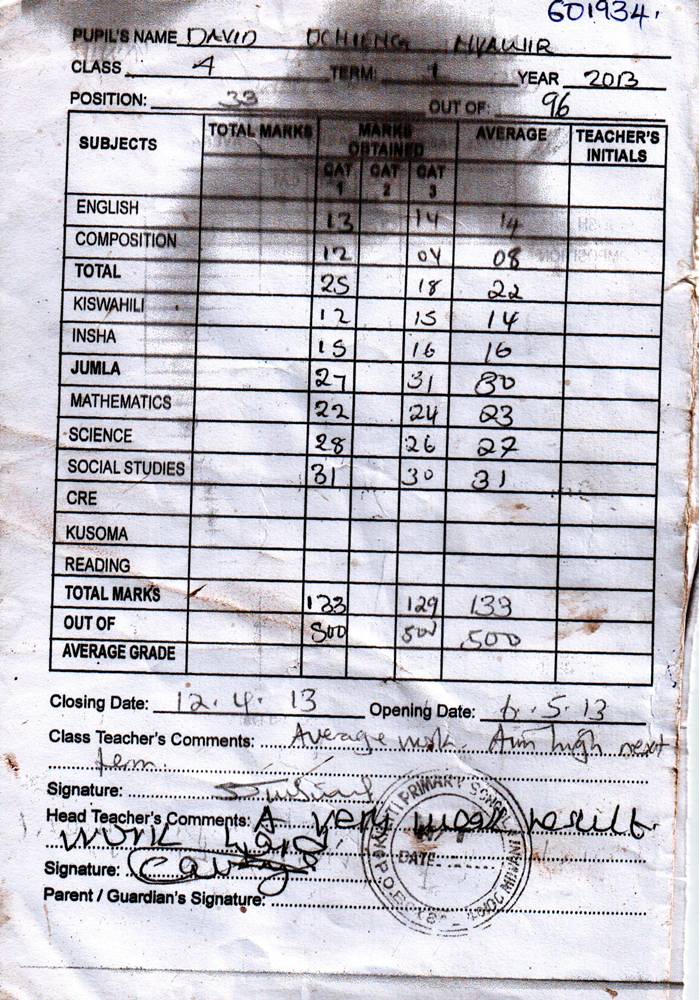 601934.
PUPIL'S NAME DAVID OCHIENG NYAWIR
CLASS 4 TERM: 1 YEAR 2013
POSITION: 33 OUT OF: 96
SUBJECTS TOTAL MARKS MARKS OBTAINED AVERAGE TEACHER'S INITIALS
CAT 1 CAT 2 CAT 3
ENGLISH 13 14 14
COMPOSITION 12 04 08
TOTAL 25 18 22
KISWAHILI 12 15 14
INSHA 15 16 16
JUMLA 27 31 30
MATHEMATICS 22 24 23
SCIENCE 28 26 27
SOCIAL STUDIES 31 30 31
CRE
KUSOMA
READING
TOTAL MARKS 133 129 133
OUT OF 500 500 500
AVERAGE GRADE
Closing Date: 12.4.13 Opening Date: 6.5.13
Class Teacher's Comments: Average work. Aim high next
term.
Signature:
Head Teacher's Comments: A very weak result.
work hard.
Signature:
Parent / Guardian's Signature:
PRIMARY SCHOOL
DATE
MIWANI